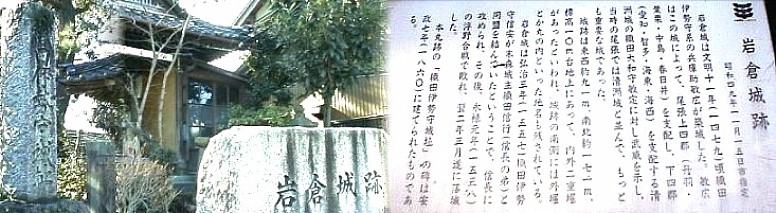 岩倉城跡
岩倉城跡
昭和四九年一一月一五日市指定
岩倉城は文明十一年(一四七九)頃織田
伊勢守系の兵庫助敏広が築城した。敏広
はこの城によって、尾張上四郡(丹羽・
葉栗・中島・春日井)を支配し、下四郡
(愛知・智多・海東・海西)を支配する清
洲城の織田大和守敏定に対し武威を示し、
当時の尾張では清洲城と並んで、もっと
も重要な城であった。
城跡は東西約九一m、南北約一七一m、
標高一〇m台地上にあって、内外二重堀
があったといわれ、城跡の南側には外堀
とか丸の内といった地名も残されている。
岩倉城は弘治三年(一五五七)織田伊勢
守信安が末森城主織田信行(信長の弟)と
同盟を結んでいたということで、信長に
攻められ、その後、永禄元年(一五五八)
の浮野合戦で敗れ、翌二年三月遂に落城
した。
本丸跡の「織田伊勢守城址」の碑は安
政七年(一八六〇)に建てられたものであ
る。